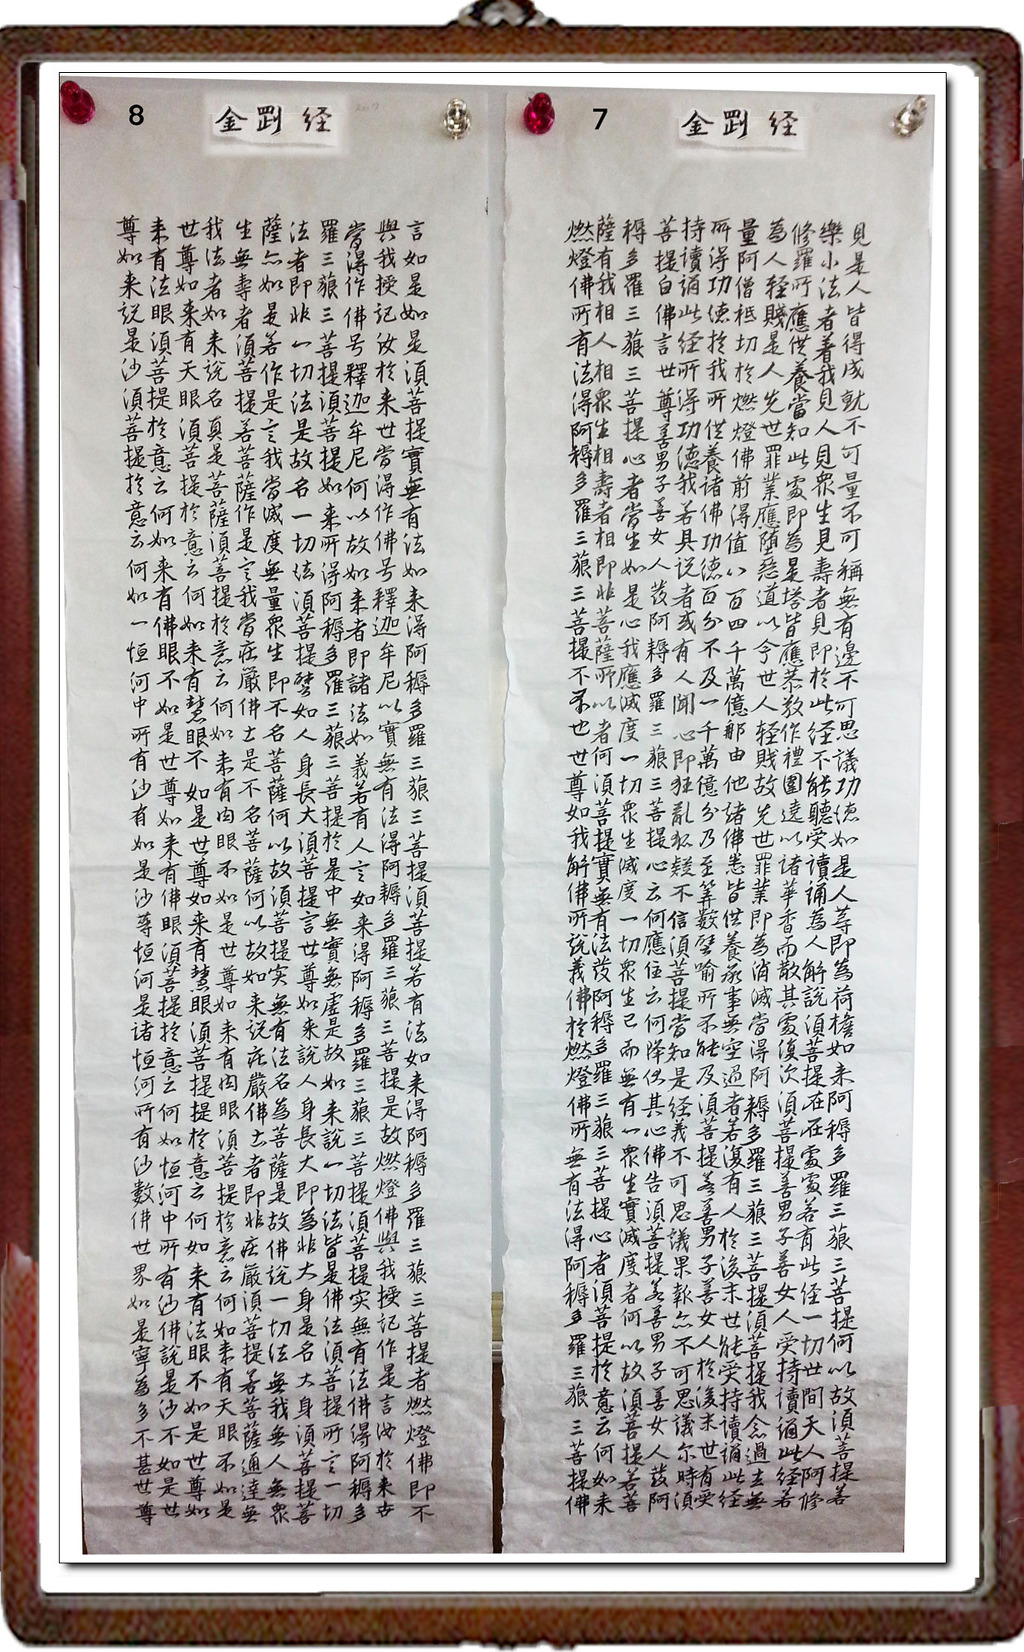 7
金剛経
見是人皆得成就不可量不可稱無有邊不可思議功德如是人等即為荷擔如来阿耨多羅三藐三菩提何以故須菩提若
樂小法者着我見人見眾生見壽者見即於此経不能聽受讀誦為人解説須菩提在在處處若有此経一切世間天人阿修
修羅所應供養當知此處即為是塔皆應恭敬作禮圍遶以諸華香而散其處復次須菩提善男子善女人受持讀誦此経若
為人輕賤是人先世罪業應堕惡道以今世人輕賤故先世罪業即為消滅當得阿耨多羅三藐三菩提須菩提我念過去無
量阿僧祗切於燃燈佛前得值八百四千萬億那由他諸佛悉皆供養承事無空過者若復有人於後末世能受持讀誦此経
所得功德於我所供養諸佛功德百分不及一千萬億分乃至算数譬喻所不能及須菩提若善男子善女人於後末世有受
持讀誦此経所得功德我若具説者或有人聞心即狂亂狐疑不信須菩提當知是経義不可思議果報亦不可思議尔時須
菩提白佛言世尊善男子善女人發阿耨多羅三藐三菩提心云何應住云何降伏其心佛告須菩提若善男子善女人發阿
耨多羅三藐三菩提心者當生如是心我應滅度一切眾生滅度一切眾生已而無有一眾生實滅度者何以故須菩提若菩
薩有我相人相眾生相壽者相即非菩薩所以者何須菩提實無有法發阿耨多羅三藐三菩提心者須菩提於意云何如来
燃燈佛所有法得阿耨多羅三藐三菩提不不也世尊如我解佛所説義佛於燃燈佛所無有法得阿耨多羅三藐三菩提佛
8
金剛経
言如是如是須菩提實無有法如来得阿耨多羅三藐三菩提須菩提若有法如来得阿耨多羅三藐三菩提者燃燈佛即不
與我授記汝於来世當得作佛号釋迦牟尼以實無有法得阿耨多羅三藐三菩提是故燃燈佛與我授記作是言汝於来世
當得作佛号釋迦牟尼何以故如来者即諸法如義若有人言如来得阿耨多羅三藐三菩提須菩提实無有法佛得阿耨多
羅三藐三菩提須菩提如来所得阿耨多羅三藐三菩提於是中無實無虚是故如来說一切法皆是佛法須菩提所言一切
法者即非一切法是故名一切法須菩提譬如人身長大須菩提言世尊如来說人身長大即為非大身是名大身須菩提菩
薩亦如是若作是言我當滅度無量眾生即不名菩薩何以故須菩提实無有法名為菩薩是故佛說一切法無我無人無眾
生無壽者須菩提若菩薩作是言我當莊嚴佛土是不名菩薩何以故如来説莊嚴佛土者即非莊嚴須菩提若菩薩通達無
我法者如来說名真是菩薩須菩提於意云何如来有肉眼不如是世尊如来有肉眼須菩提於意云何如来有天眼不如是
世尊如来有天眼須菩提於意云何如来有慧眼不如是世尊如来有慧眼須菩提提於意云何如来有法眼不如是世尊如
来有法眼須菩提於意云何如来有佛眼不如是世尊如来有佛眼須菩提於意云何如恒河中所有沙佛說是沙不如是世
尊如来説是沙須菩提於意云何如一恒河中所有沙有如是沙等恒河是諸恒河所有沙數佛世界如是寧為多不甚世尊